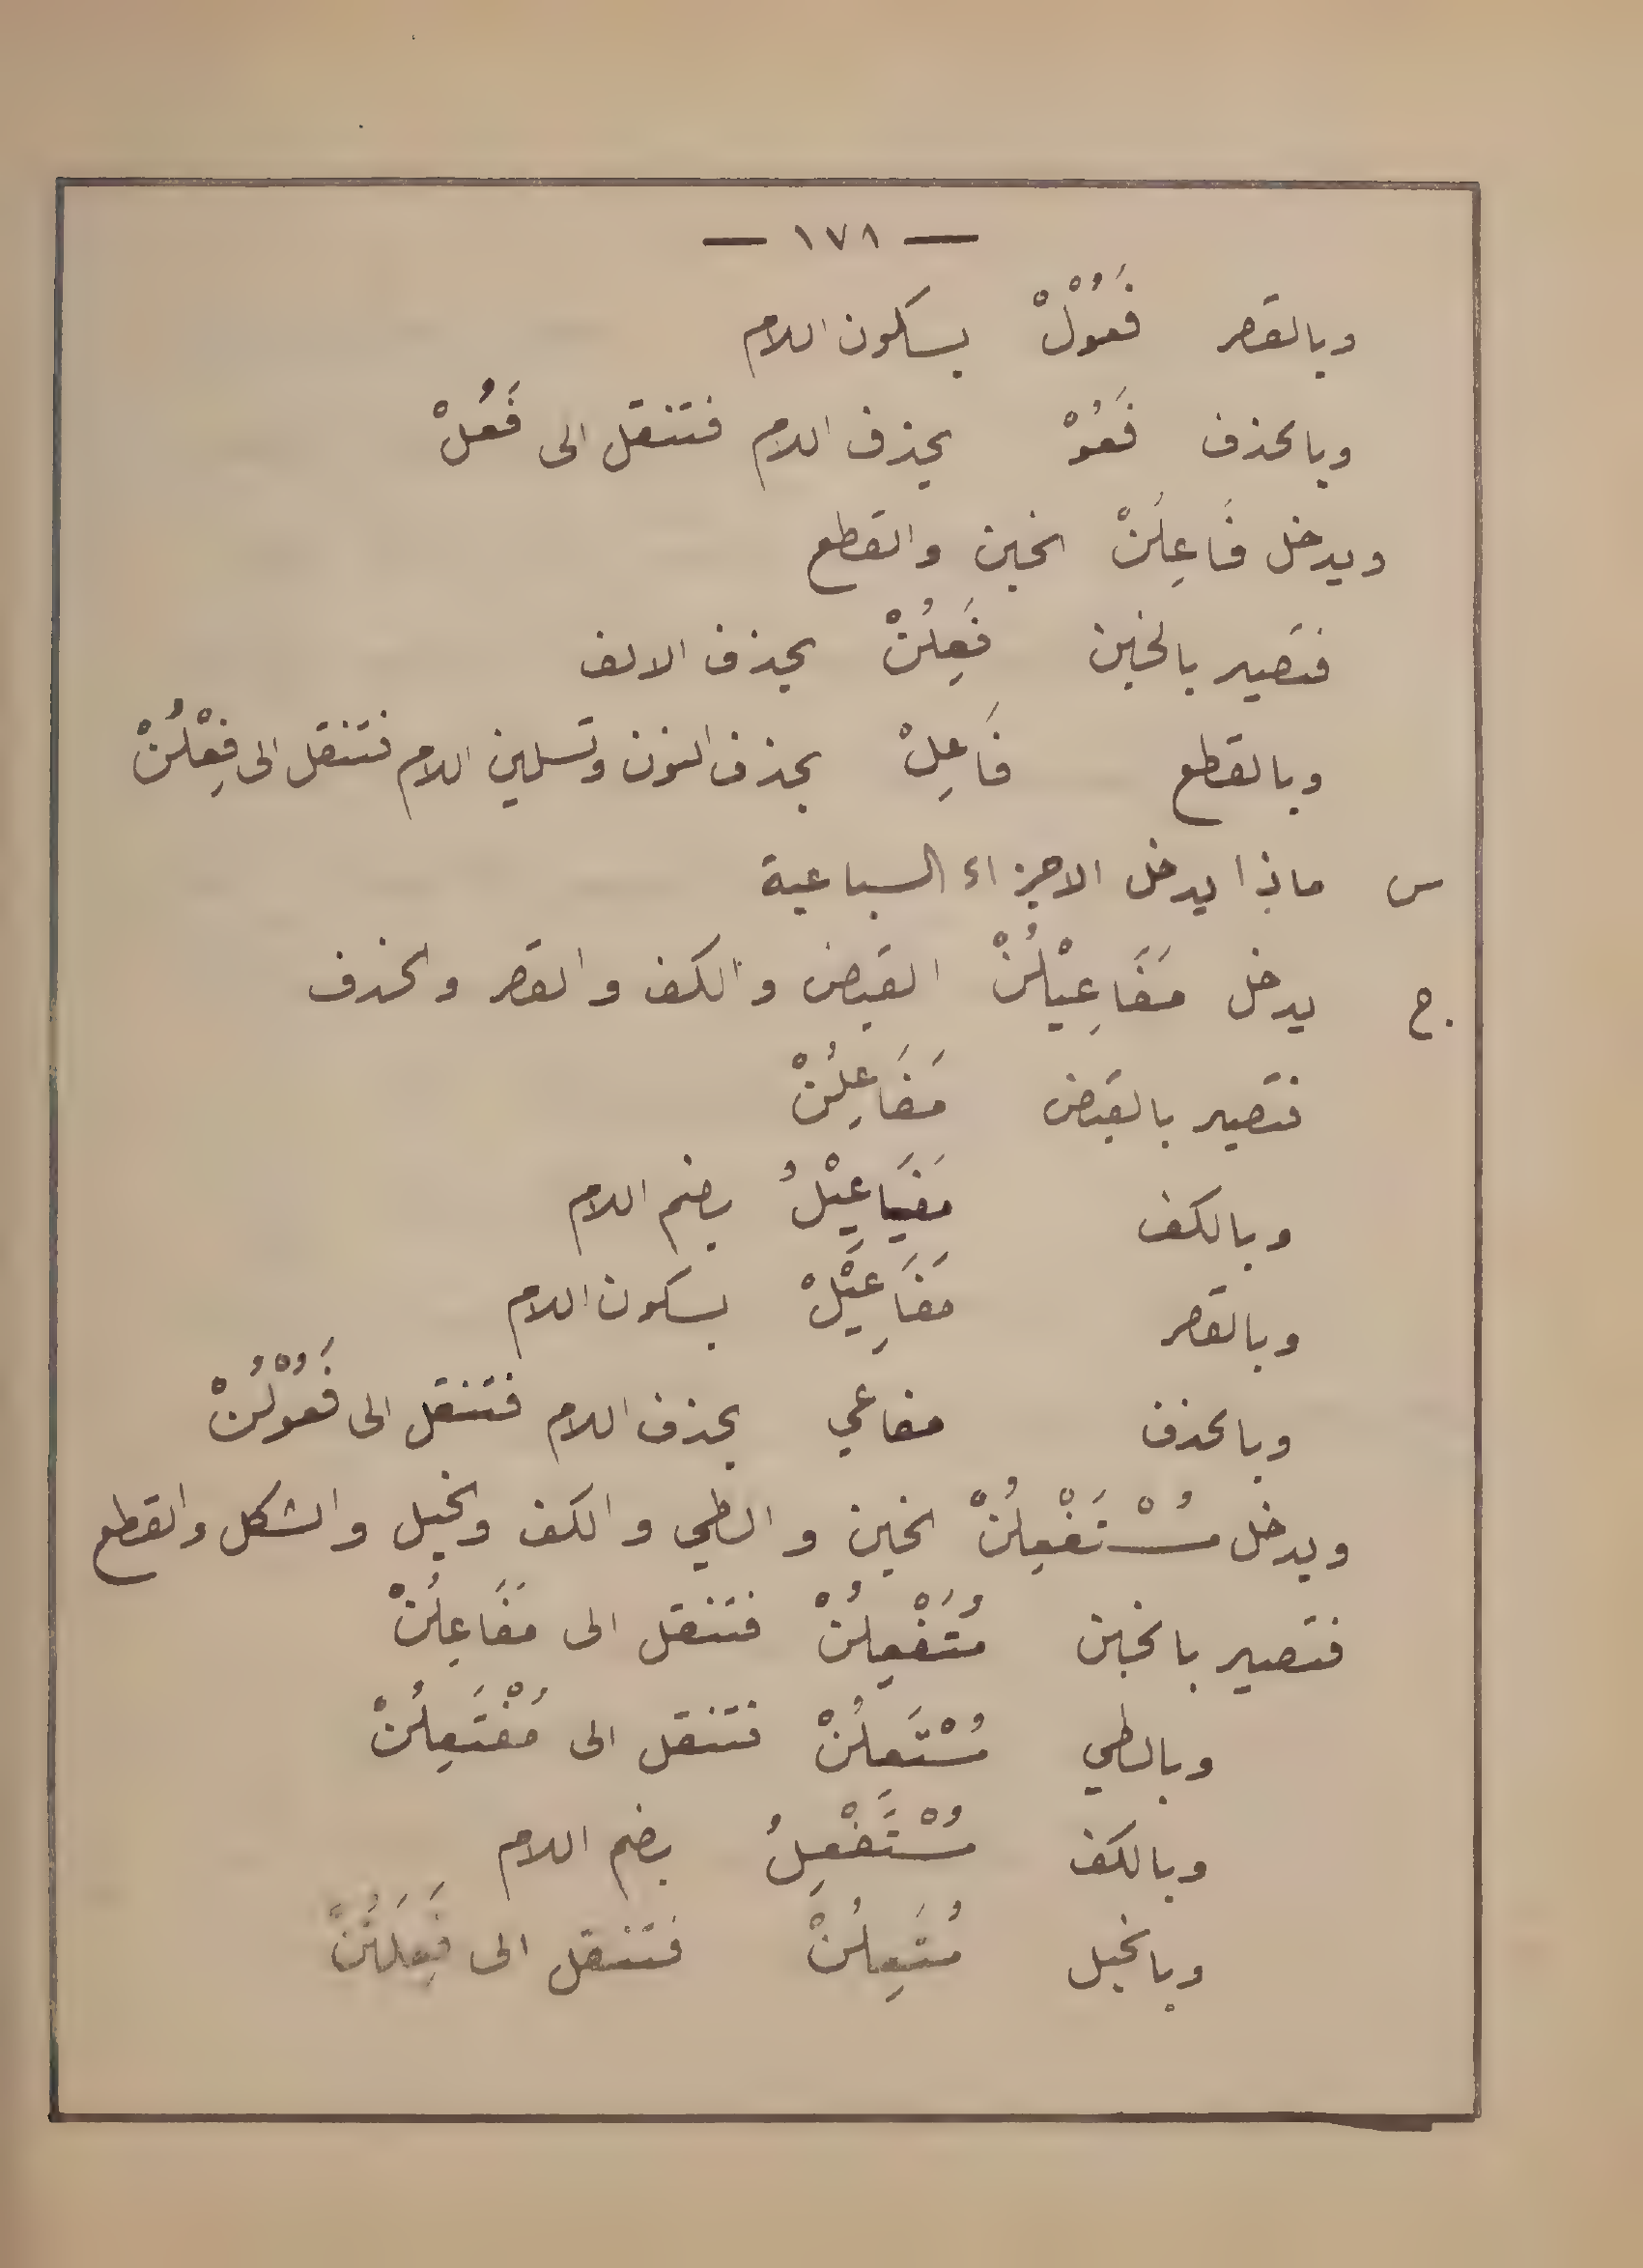 — ١٧٨ —
وبالقصر فَعُوْلْ بسكون اللام
وبالحذف فَعُوْ بحذف اللام فتنقل الى فَعُلْ
ويدخل فَاعِلُنْ الخبن والقطع
فتصير بالخبن فَعِلُنْ بحذف الالف
وبالقطع فَاعِلْ بحذف النون وتسكين اللام فتنقل الى فِعْلُنْ
س ماذا يدخل الاجزاء السباعية
ج. يدخل مَفَاعِيْلُنْ القبض والكف والقصر والحذف
فتصير بالقبض مَفَاعِلُنْ
وبالكف مَفَاعِيْلُ بضم اللام
وبالقصر مَفَاعِيْلْ بسكون اللام
وبالحذف مفاعي بحذف اللام فتنقل الى فَعُوْلُنْ
ويدخل مُسْتَفْعِلُنْ الخبن والطي والكف والخبل والشكل والقطع
فتصير بالخبن مُتَفْعِلُنْ فتنقل الى مَفَاعِلُنْ
وبالطي مُسْتَعِلُنْ فتنقل الى مُفْتَعِلُنْ
وبالكف مُسْتَفْعِلُ بضم اللام
وبالخبل مُتَعِلُنْ فتنقل الى فَعِلَتُنْ